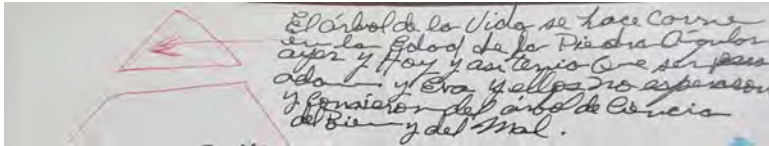 El árbol de la Vida se hace carne
en la Edad de la Piedra Angular
ayer y Hoy y asi tenia que ser para
adan y Eva y ellos no esperaron
y comieron del árbol de Ciencia
del Bien y del Mal.